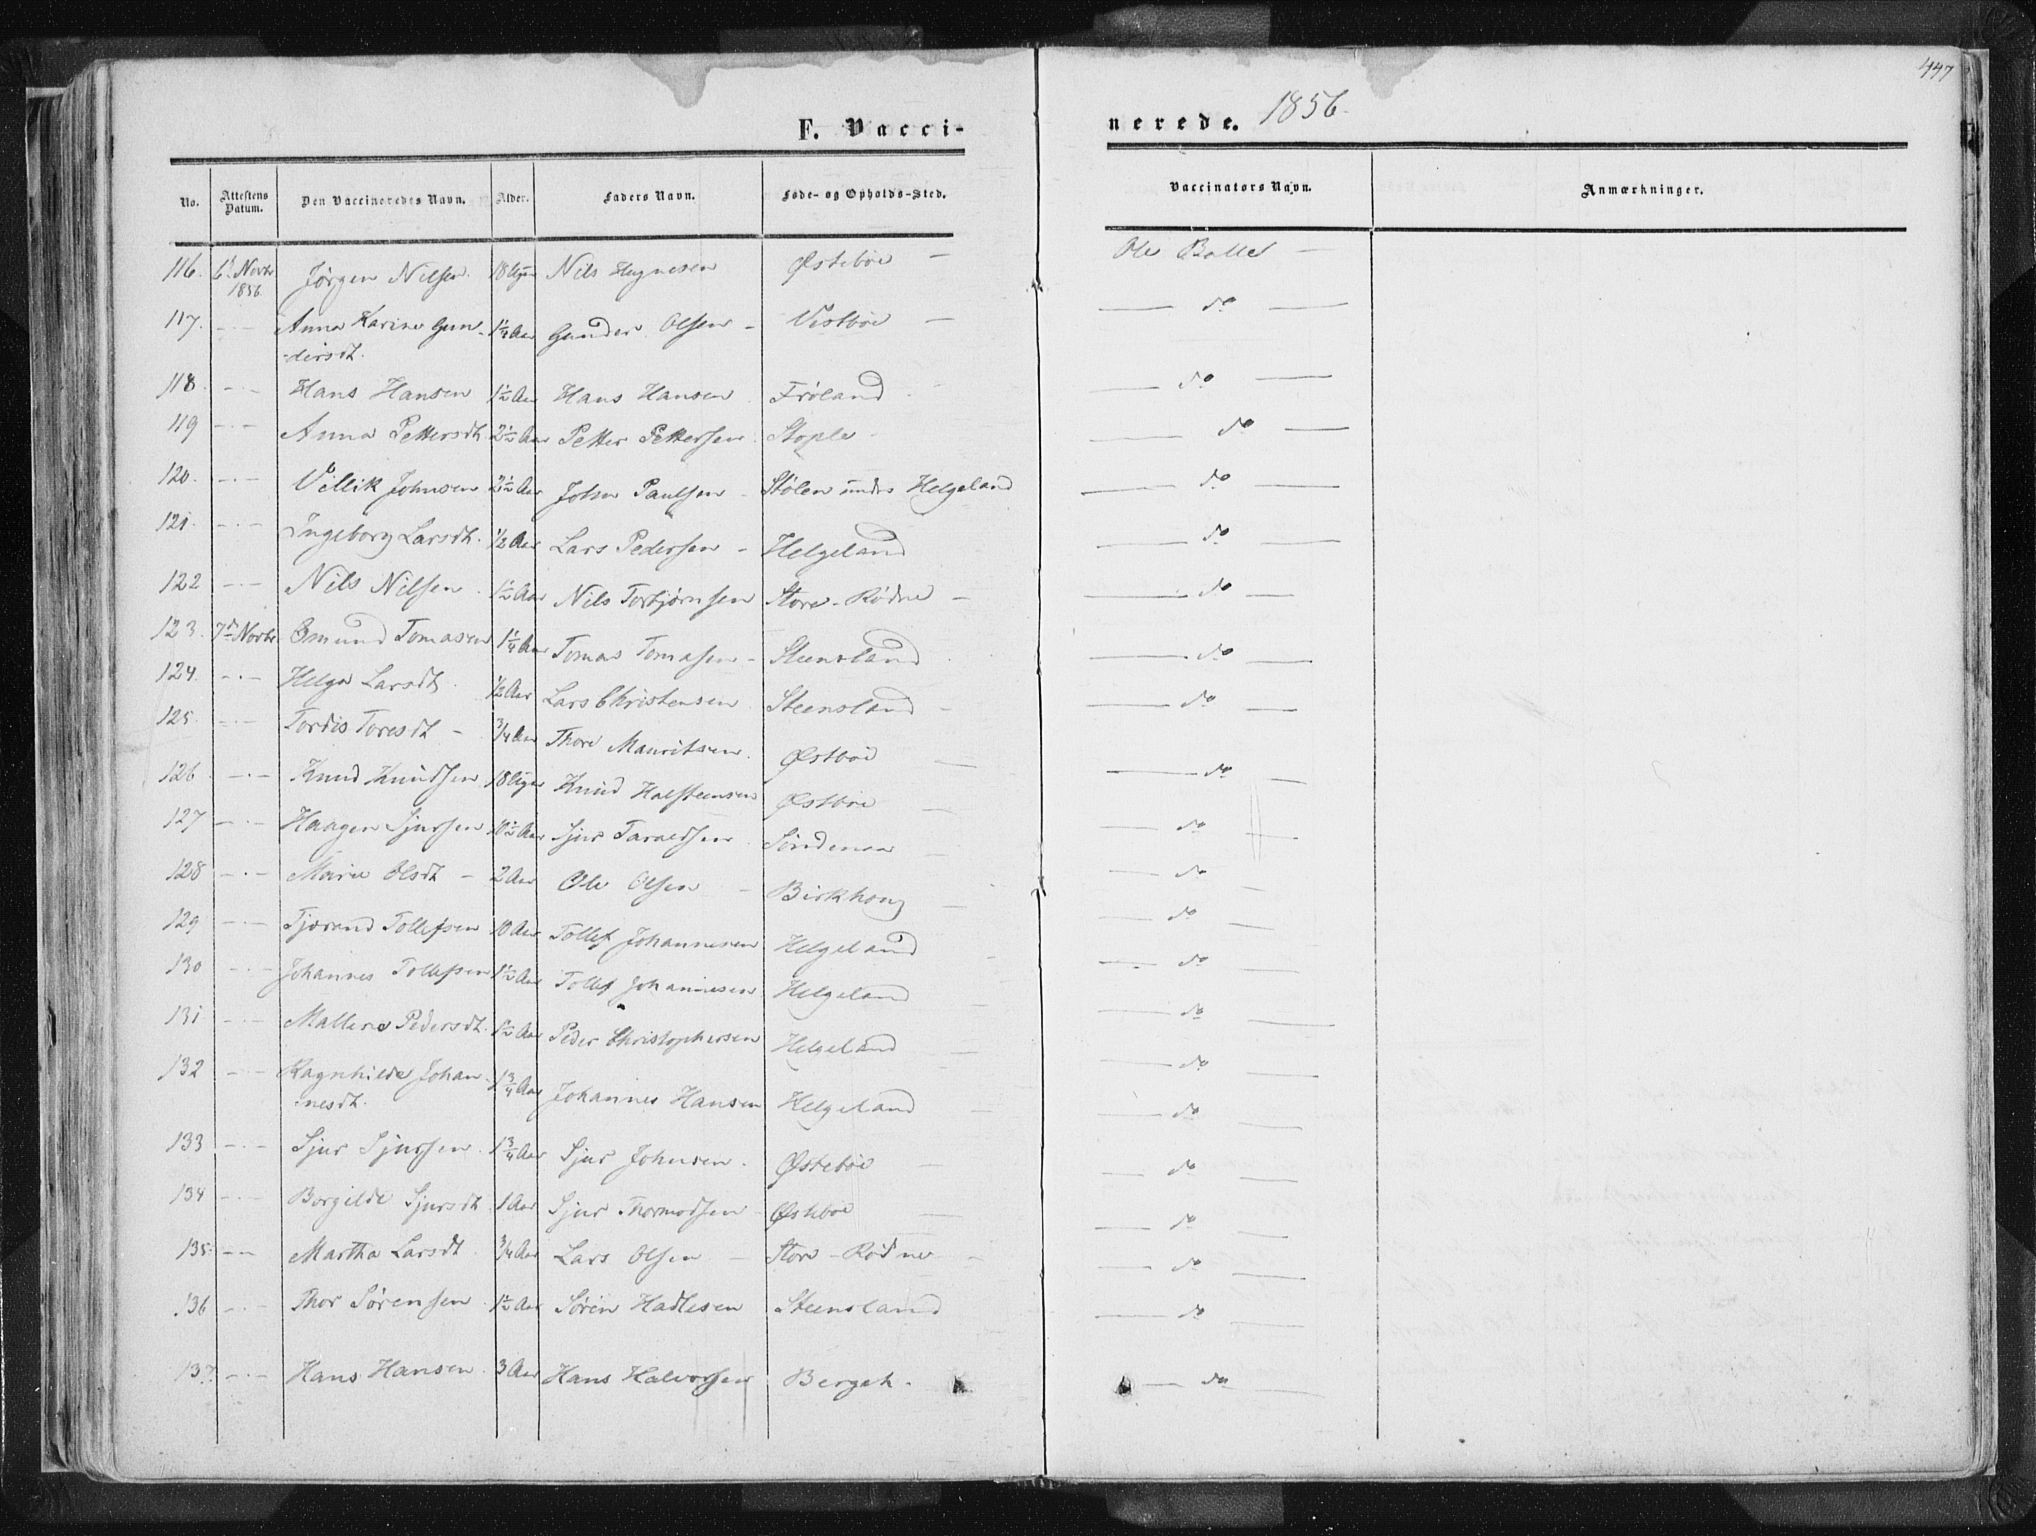 447
F. Vaccinerede. 1856.
No. Attestens Datum. Den Vaccineredes Navn. Alder. Faders Navn. Føde- og Opholds-Sted. Vaccinators Navn. Anmærkninger.
116. 6t Novbr 1856. Jørgen Nilsen. 18 Uger Nils Østebøe — Ole Balle —
117. — Anna Karine Gun- 1¼ Aar Gunder Olsen — Vestbøe — do —
-dersdt.
118. — Hans Hansen 1½ Aar Hans Hansen Frøland — do —
119 — Anna Pettersdt. 2½ Aar Petter Pettersen Stople — do —
120. — Villik Johnsen 2½ Aar John Paulsen — Stølen under Helgeland — do —
121. — Ingeborg Larsdt. ½ Aar Lars Pedersen — Helgeland — do —
122 — Nils Nilsen 1½ Aar Nils Torbjørnsen Store-Rødne — — do —
123. 7de Novbr Osmund Tomasen 1¼ Aar Tomas Tomasen — Steensland — do —
124. — Helga Larsdt. ½ Aar Lars Christensen Steensland — — do —
125. — Tordis Toresdt — ¾ Aar Thore Mauritsen. Østbøe — — do —
126 — Knud Knudsen 18 Uger Knud Halsteensen Østbøe — — do —
127 — Haagen Sjursen 10½ Aar Sjur Taraldsen Søndenaa — — do —
128 — Marie Olsdt — 2 Aar Ole Olsen — Birkhoug — — do —
129 — Tjerand Tollefsen 10 Aar Tollef Johannesen Helgeland — — do —
130 — Johannes Tollefsen 1½ Aar Tollef Johannesen Helgeland — — do —
131 — Mallene Pedersdt. 1½ Aar Peder Christophersen Helgeland — — do —
132 — Ragnhilde Johan- 1¾ Aar Johannes Hansen Helgeland — — do —
-nesdt. — do —
133 — Sjur Sjursen. 1¾ Aar Sjur Johnsen. Østebøe — — do —
134 — Borgilde Sjursdt 1 Aar Sjur Thormodsen Østebøe — — do —
135. — Martha Larsdt ¾ Aar Lars Olsen — Store-Rødne — — do —
136 — Thor Sørensen 1½ Aar Søren Hadlesen Steensland — do —
137. — Hans Hansen 3 Aar Hans Halvorsen — do —